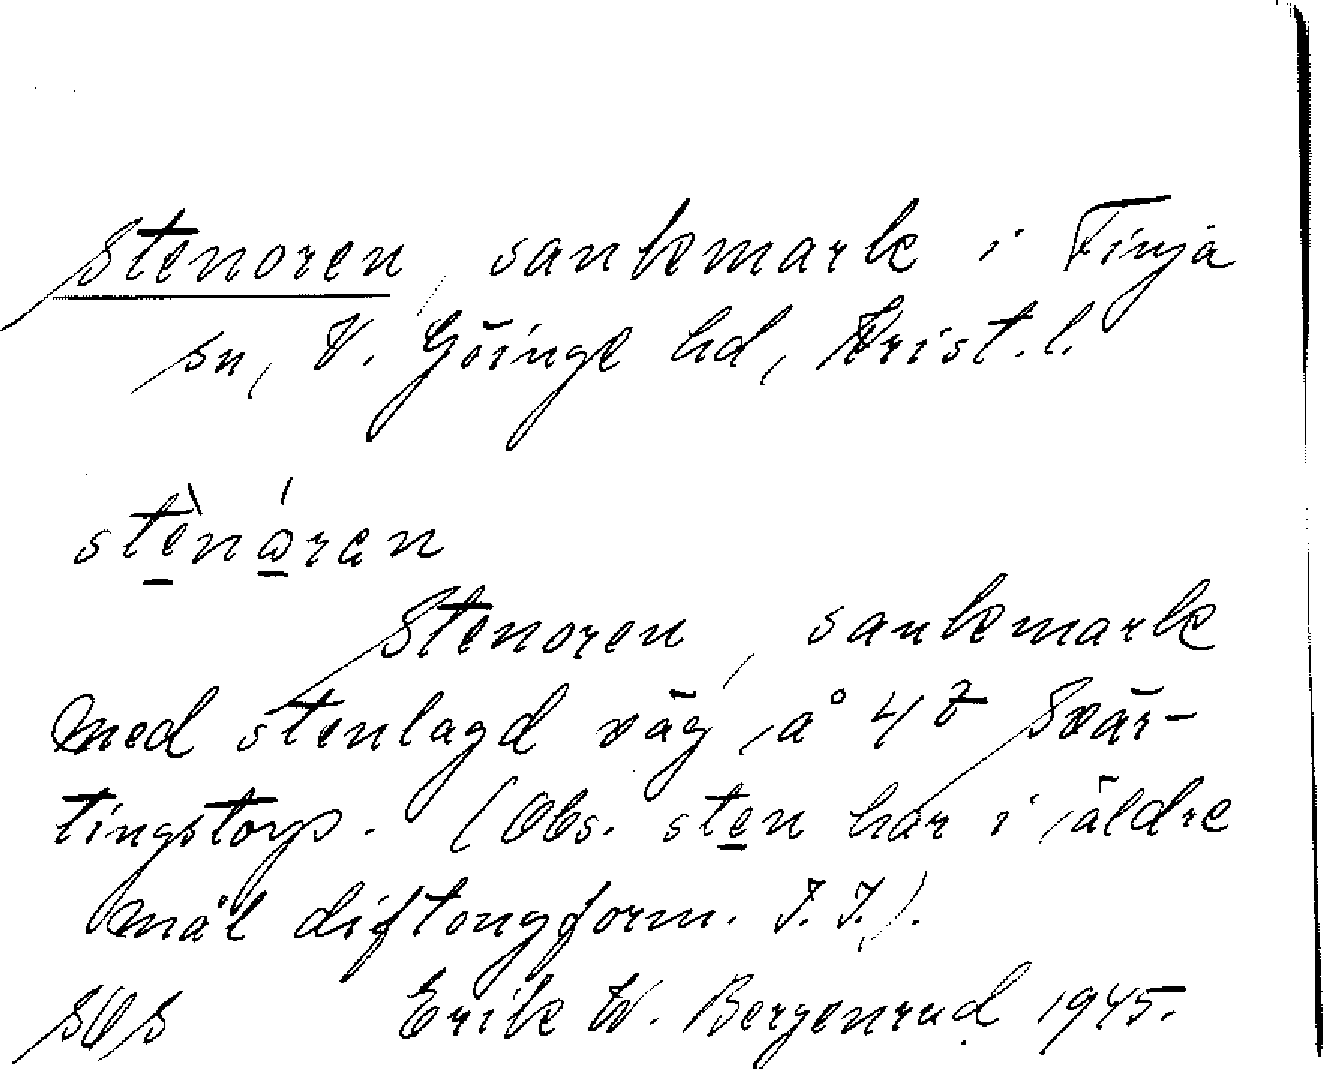 Stenoren, sankmark i Finja
sn, V. Göinge hd, Krist. l.
stènɷ́rən
Stenoren, sankmark
med stenlagd väg, å 4² Svär-
tingstorp. (Obs. sten har i äldre
mål diftongform. I. I.).
SOS Erik W. Bergenrud 1945.